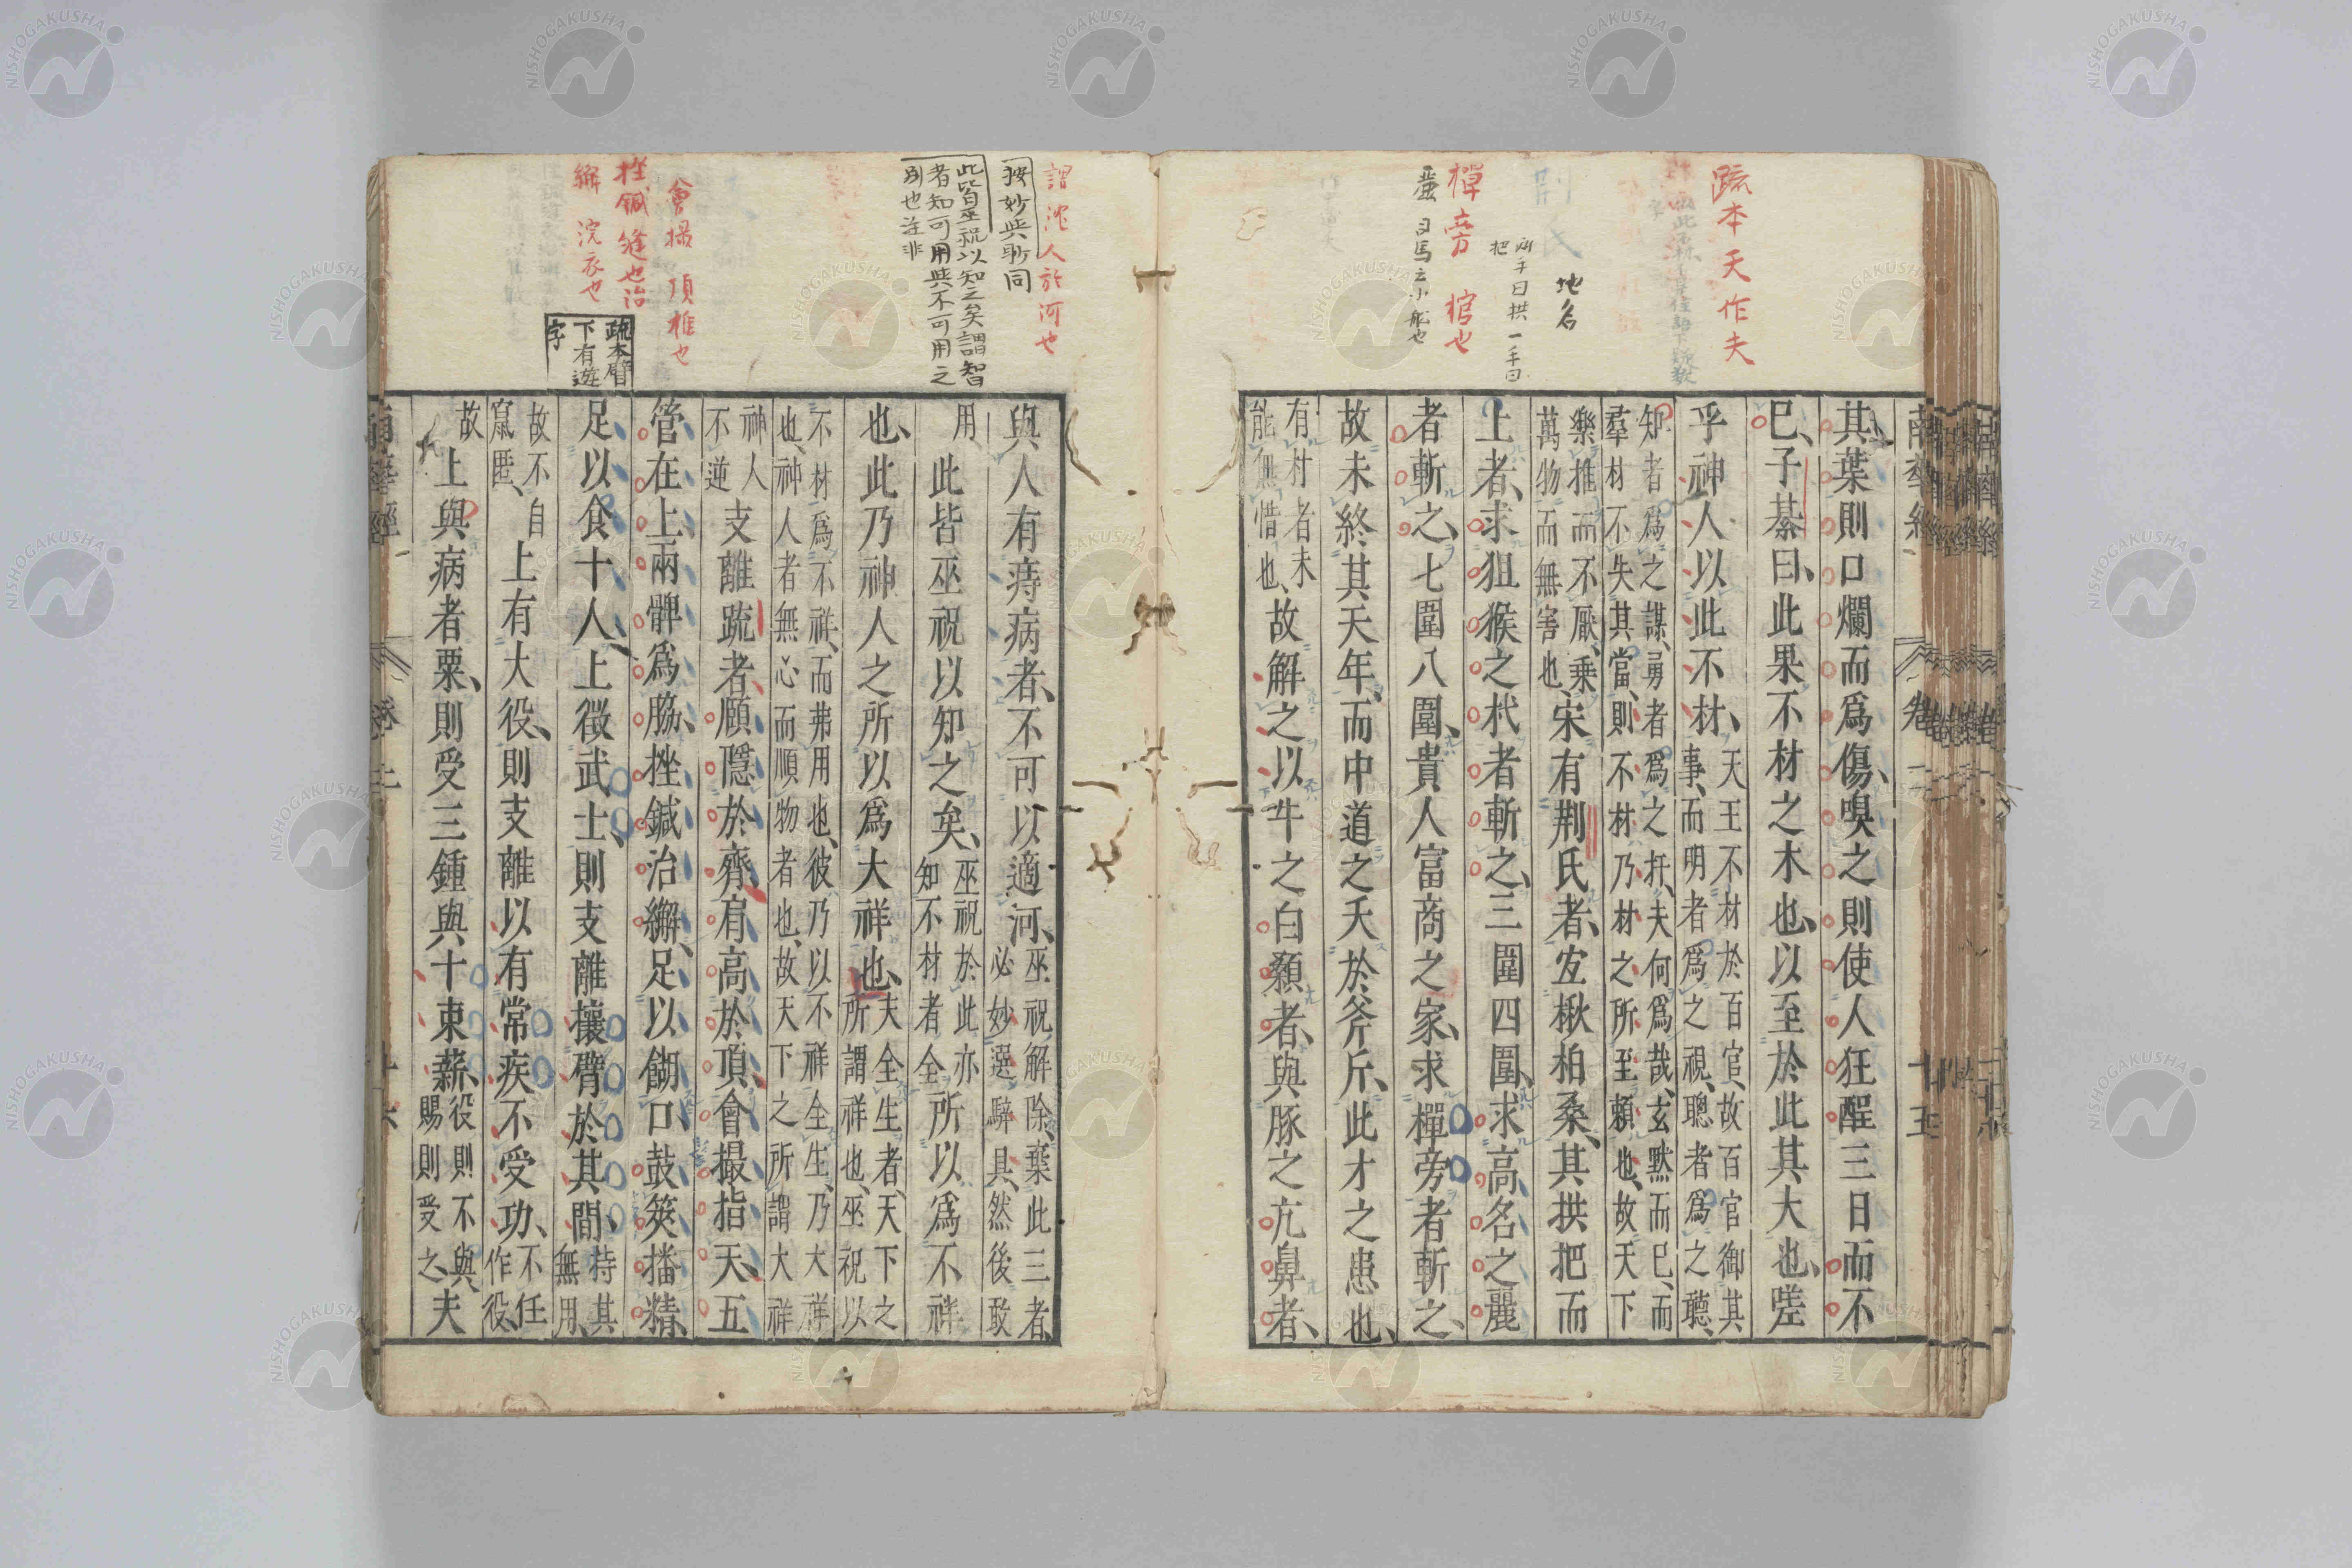 疏本天作夫
地名
兩手曰拱一手曰
把
樿旁 棺也
其葉則口爛而爲傷嗅之則使人狂酲三日而不
已子綦曰此果不材之木也以至於此其大也嗟
乎神人以此不材
天王不材於百官故百官御其
事而明者爲之視聰者爲之聽
知者爲之謀勇者爲之扞夫何爲哉玄默而已而
羣材不失其當則不材乃材之所至賴也故天下
樂推而不厭乗
萬物而無害也
宋有荆氏者宜楸柏桑其拱把而
上者求狙猴之杙者斬之三圍四圍求高名之麗
者斬之七圍八圍貴人富商之家求樿旁者斬之
故未終其天年而中道之夭於斧斤此才之患也
有材者未
能無惜也
故解之以牛之白顙者與豚之亢鼻者
謂沈人於河也
按妙與聊同
此皆巫祝以知之矣謂智
者知可用與不可用之
別也注非
會撮 項椎也
挫鍼 縫也治
繲 浣衣也
疏本臂
下有遊
字
與人有痔病者不可以適河
巫祝解除棄此三者
必妙選騂具然後敢
用
此皆巫祝以知之矣
巫祝於此亦
知不材者全
所以爲不祥
也此乃神人之所以爲大祥也
夫全生者天下之
所謂祥也巫祝以
不材爲不祥而弗用也彼乃以不祥全生乃大祥
也神人者無心而順物者也故天下之所謂大祥
神人
不逆
支離疏者頤隱於齊肩高於頂會撮指天五
管在上兩髀爲脇挫鍼治繲足以餬口鼓筴播精
足以食十人上徵武士則支離攘臂於其間
恃其
無用
故不自
竄匿
上有大役則支離以有常疾不受功
不任
作役
故
上與病者粟則受三鍾與十束薪
役則不與
賜則受之
夫